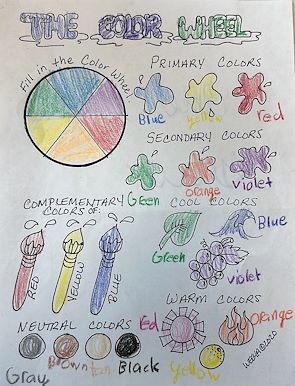 THE COLOR WHEEL
Fill in the Color Wheel.
PRIMARY COLORS
Blue
Yellow
red
SECONDARY COLORS
Green
orange
violet
COMPLEMENTARY
COLORS OF:
RED
YELLOW
BLUE
COOL COLORS
Green
Blue
violet
WARM COLORS
Red
orange
Yellow
NEUTRAL COLORS
Gray
Brown
tan
Black